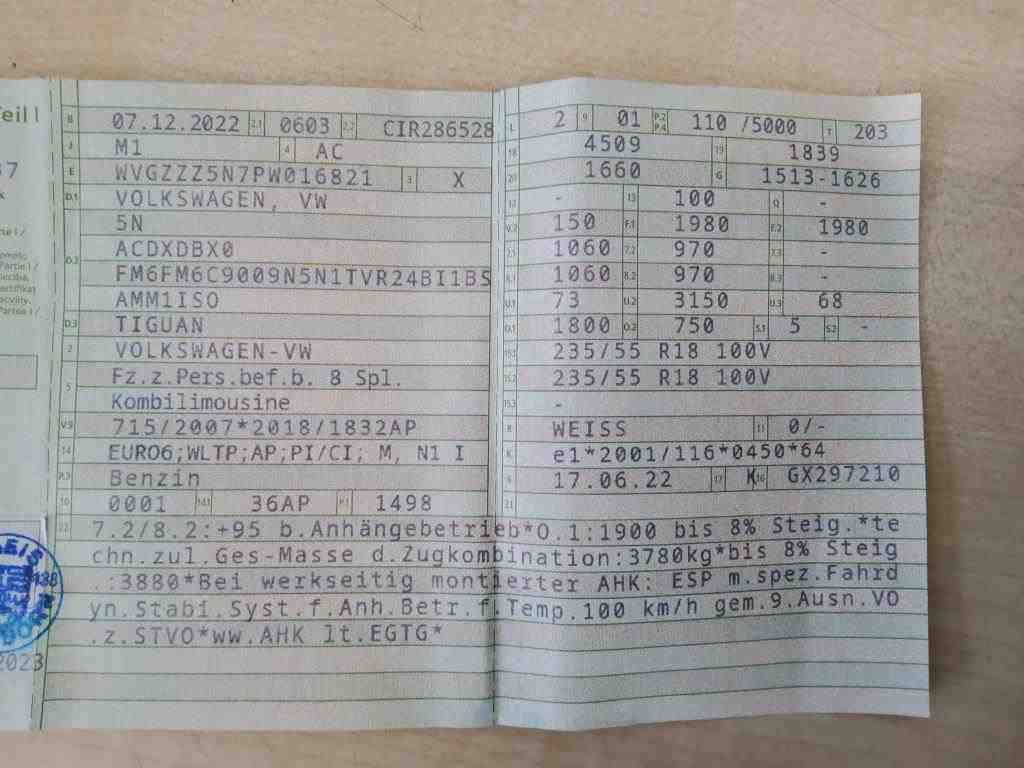 Teil I
B 07.12.2022 2.1 0603 2.2 CIR286528
J M1 4 AC
E WVGZZZ5N7PW016821 3 X
D.1 VOLKSWAGEN, VW
5N
D.2 ACDXDBX0
FM6FM6C9009N5N1TVR24BI1BS
AMM1ISO
D.3 TIGUAN
2 VOLKSWAGEN-VW
5 Fz.z.Pers.bef.b. 8 Spl.
Kombilimousine
V.9 715/2007*2018/1832AP
14 EURO6;WLTP;AP;PI/CI; M, N1 I
P.3 Benzin
10 0001 14.1 36AP P.1 1498
L 2 9 01 P.2 P.4 110 /5000 T 203
18 4509 19 1839
20 1660 G 1513-1626
12 - 13 100 Q -
V.7 150 F.1 1980 F.2 1980
7.1 1060 7.2 970 7.3 -
8.1 1060 8.2 970 8.3 -
U.1 73 U.2 3150 U.3 68
O.1 1800 O.2 750 S.1 5 S.2 -
15.1 235/55 R18 100V
15.2 235/55 R18 100V
15.3 -
R WEISS 11 0/-
K e1*2001/116*0450*64
6 17.06.22 17 K 16 GX297210
21
22 7.2/8.2:+95 b.Anhängebetrieb*O.1:1900 bis 8% Steig.*te
chn.zul.Ges-Masse d.Zugkombination:3780kg*bis 8% Steig
.:3880*Bei werkseitig montierter AHK: ESP m.spez.Fahrd
yn.Stabi.Syst.f.Anh.Betr.f.Temp.100 km/h gem.9.Ausn.VO
.z.STVO*ww.AHK lt.EGTG*
2023